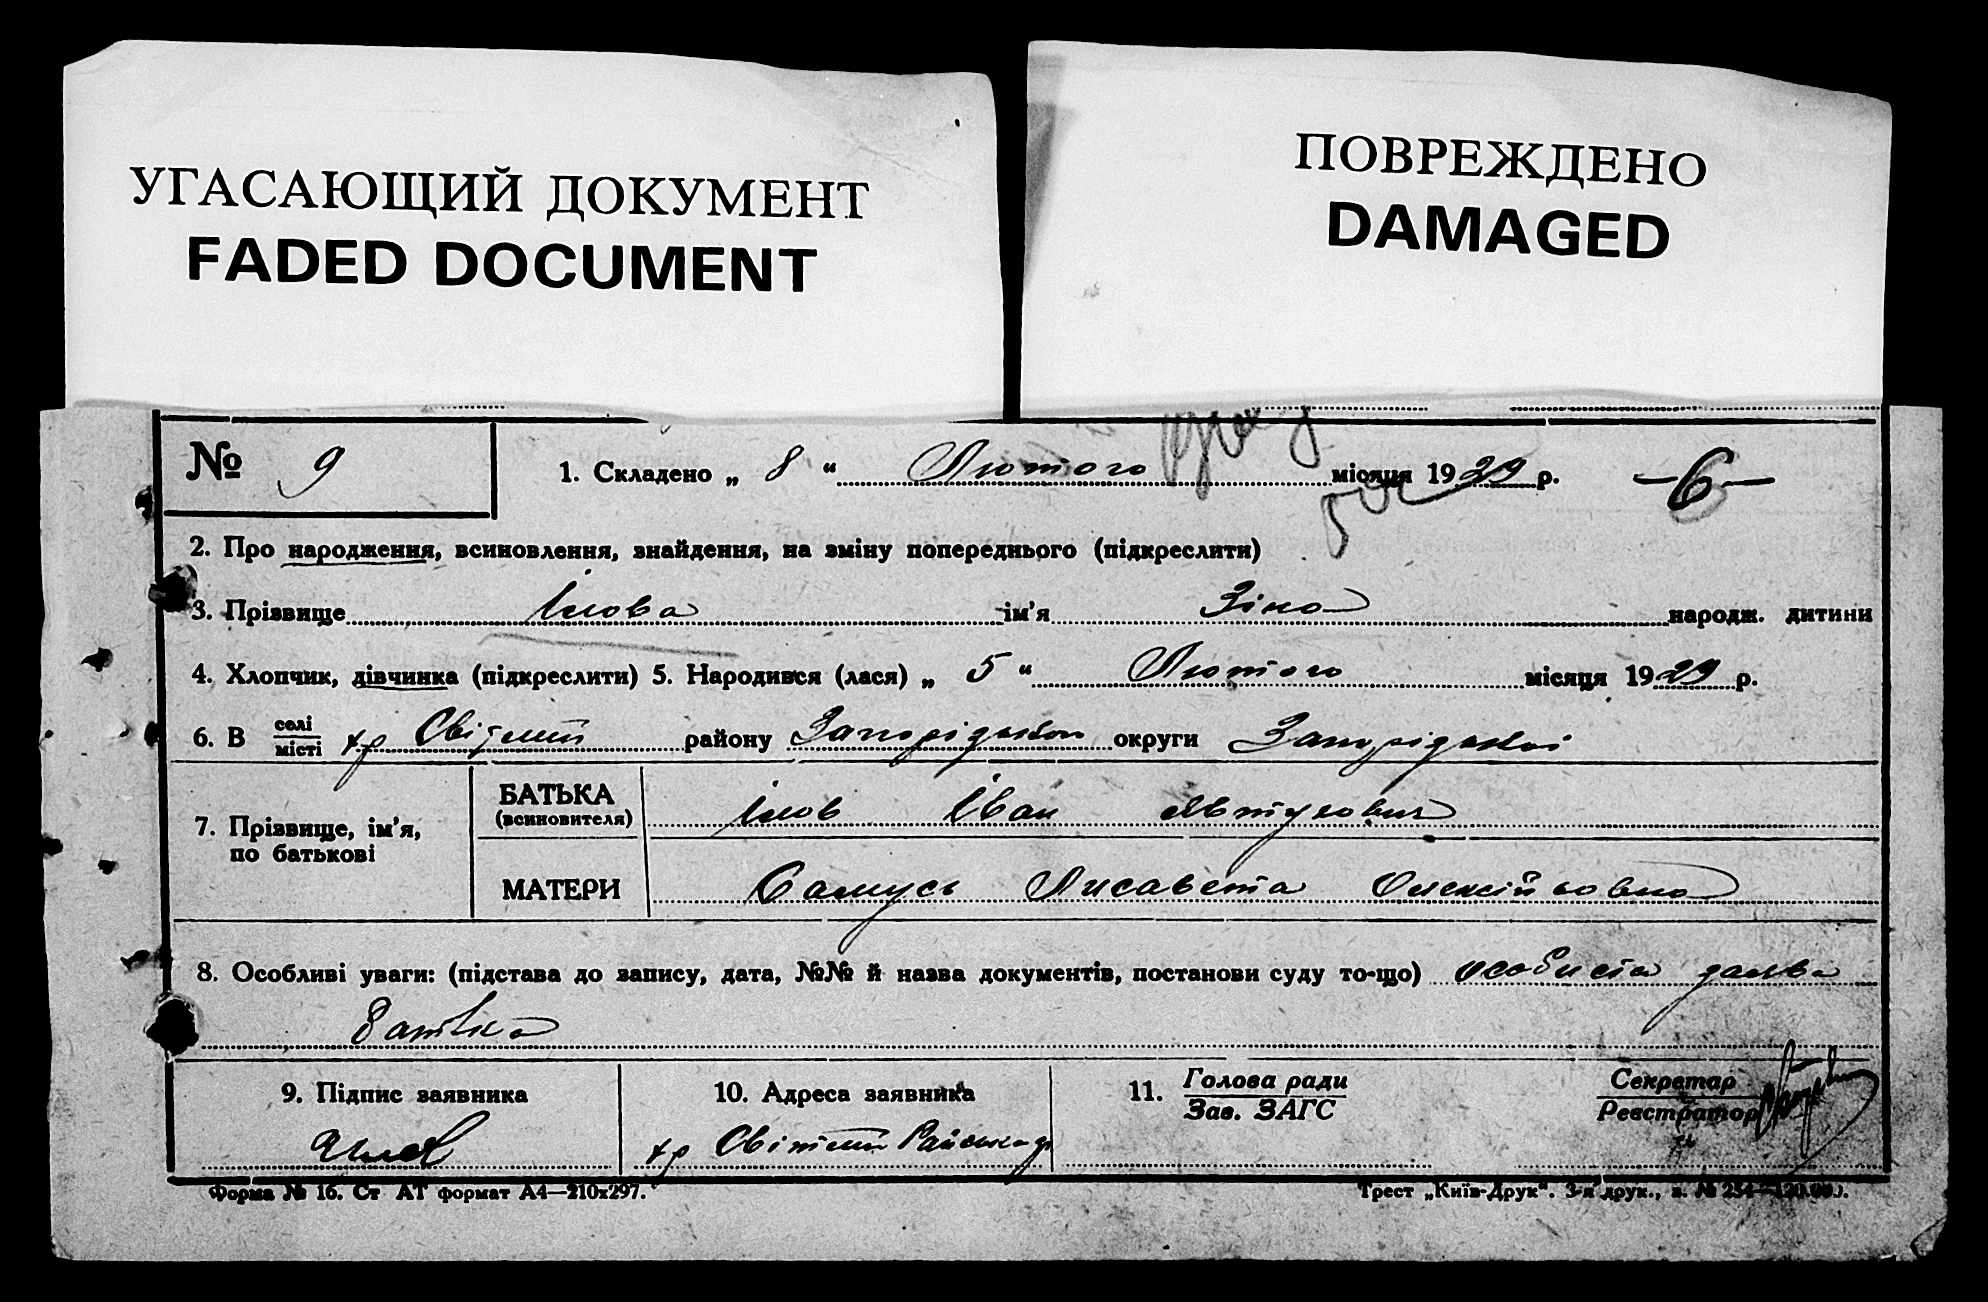 УГАСАЮЩИЙ ДОКУМЕНТ
FADED DOCUMENT
ПОВРЕЖДЕНО
DAMAGED
№ 9
1. Складено „ 8 “ Лютого місяця 1929 р. -6-
2. Про народження, всиновлення, знайдення, на зміну попереднього (підкреслити)
3. Прізвище Ілова ім’я Зіна народж. дитини
4. Хлопчик, дівчинка (підкреслити) 5. Народився (лася) „ 5 “ Лютого місяця 1929 р.
6. В селі місті хр Світлий району Запорізькой округи Запорізької
7. Прізвище, ім’я, по батькові
БАТЬКА (всиновителя) Ілов Іван Явтухович
МАТЕРИ Самусь Лисавета Олексійовна
8. Особливі уваги: (підстава до запису, дата, №№ й назва документів, постанови суду то-що) особиста заява
батька
9. Підпис заявника
10. Адреса заявника
хр Світлий
11. Голова ради
Зав. ЗАГС
Секретар
Реєстратор
Форма № 16. Ст АТ формат А4—210х297.
Трест „Київ-Друк“. 3-я друк., з. № 254